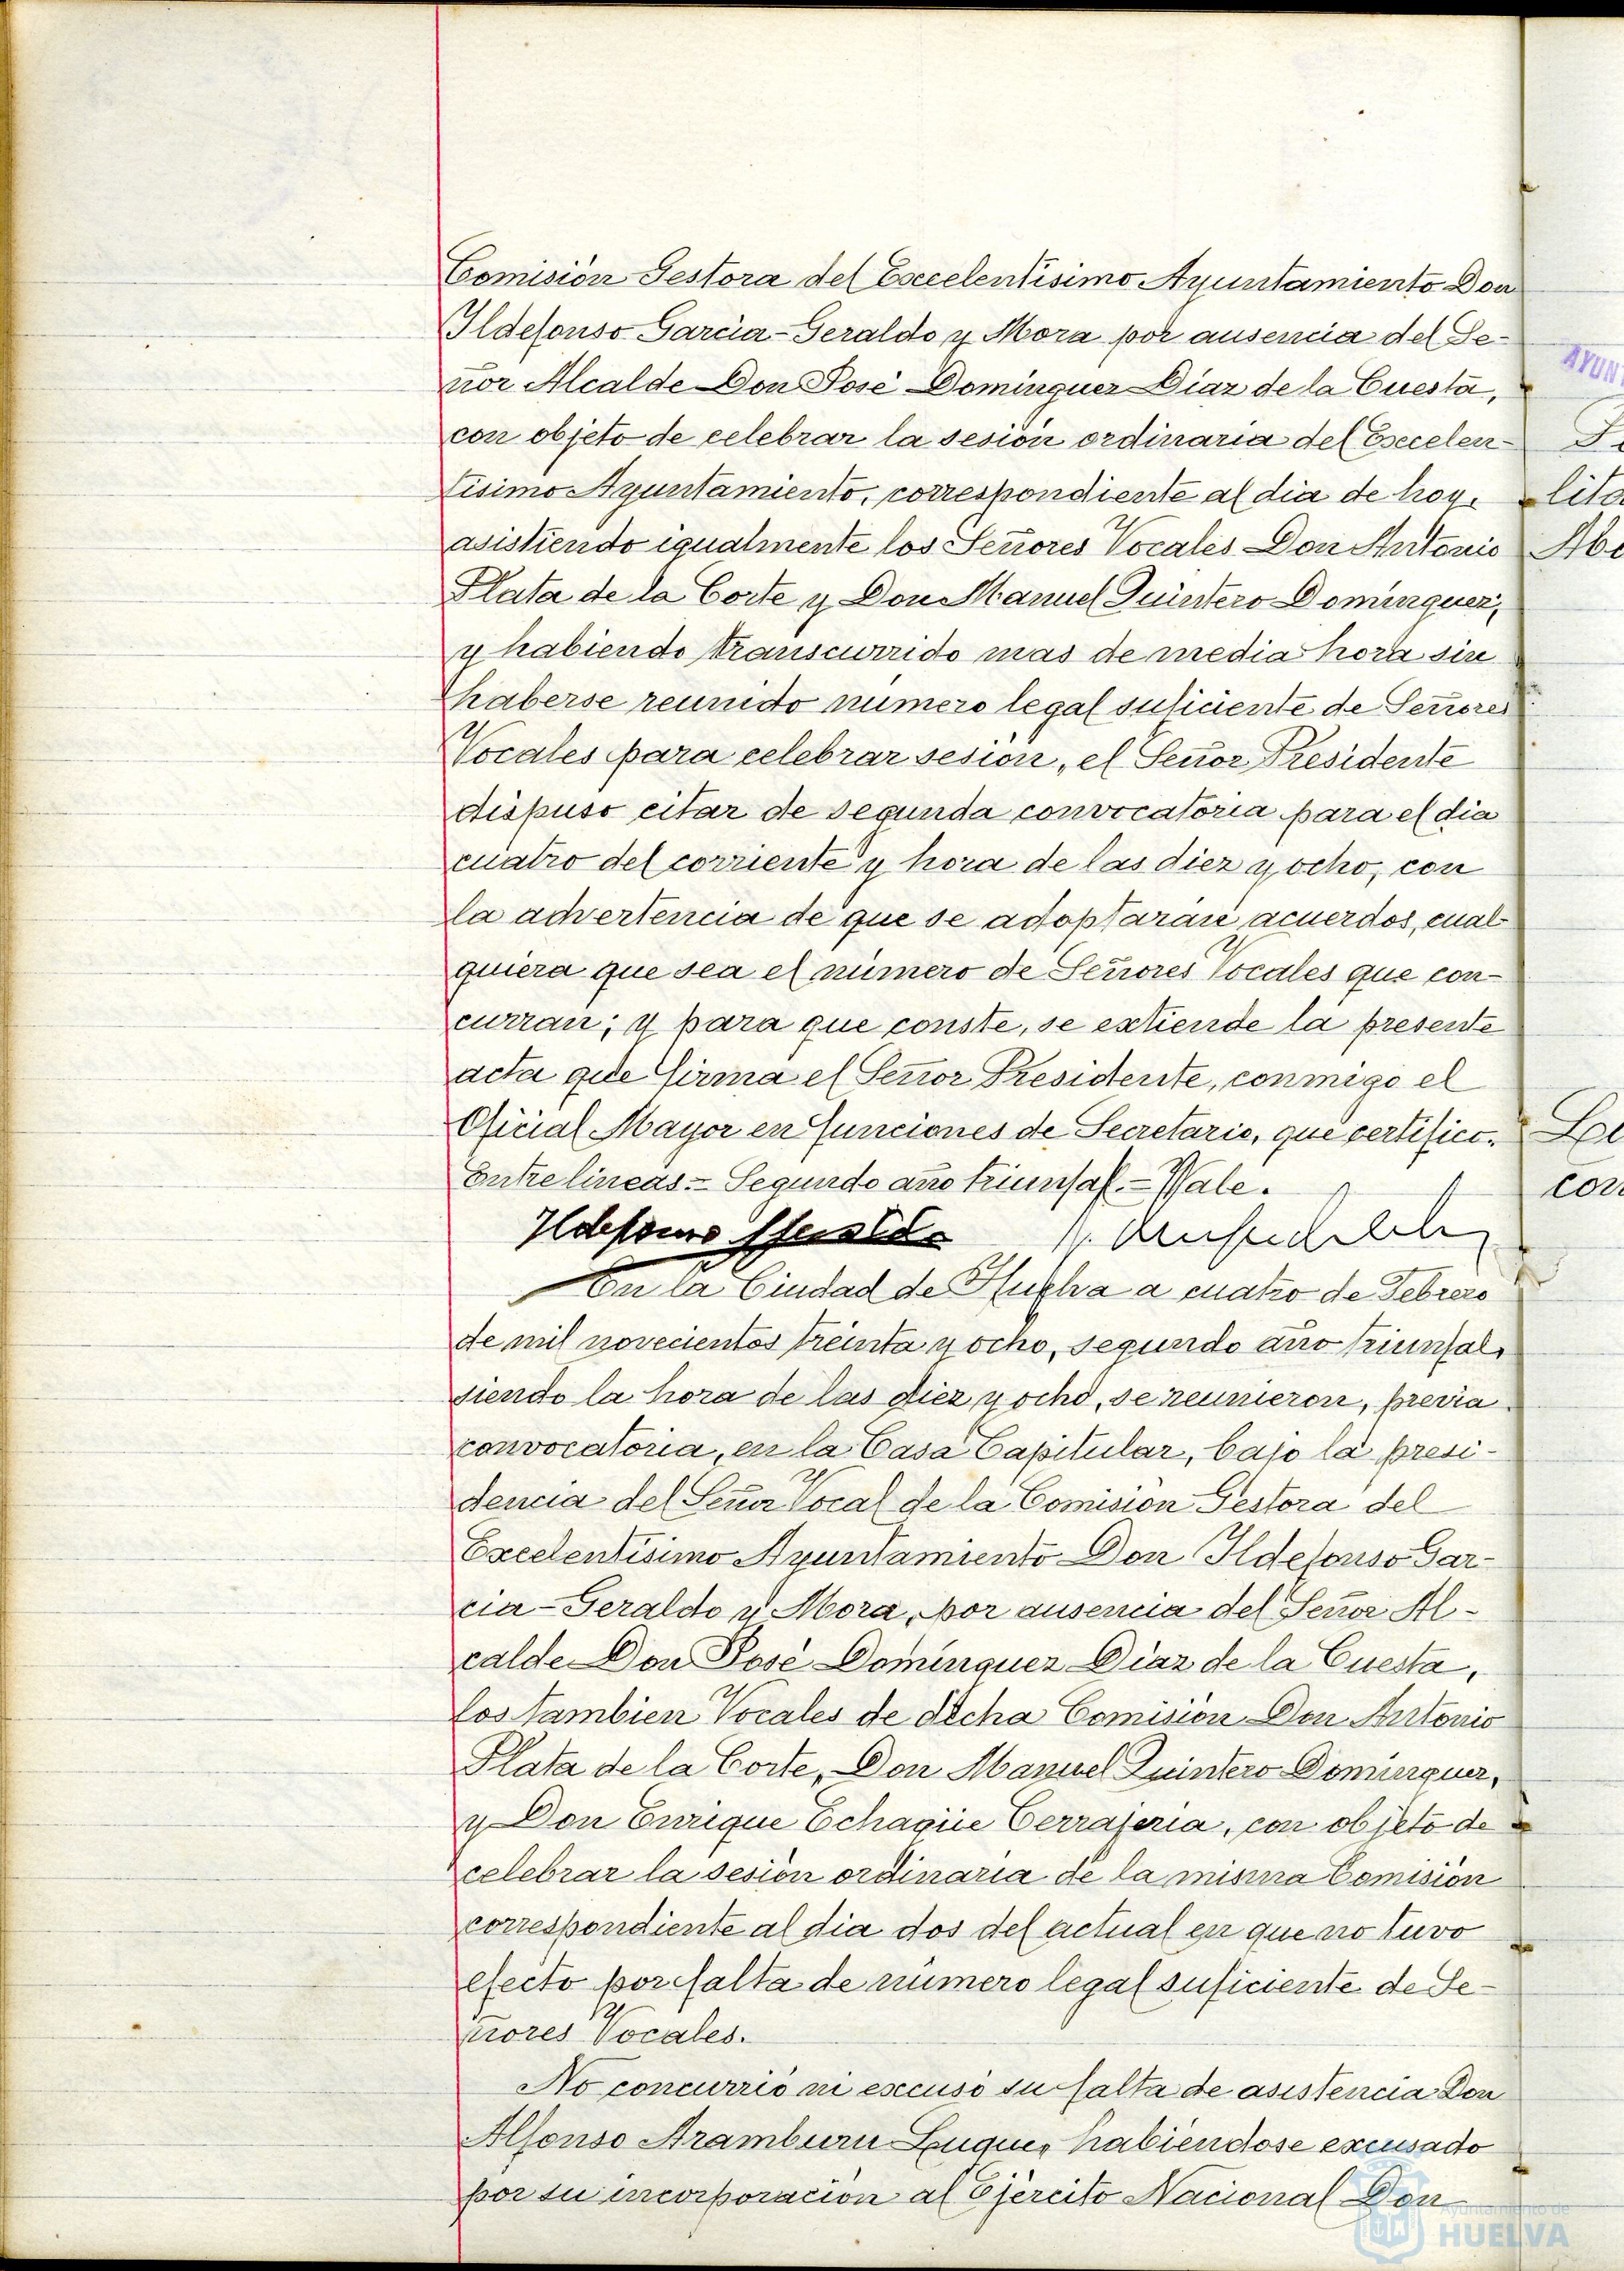 Comisión Gestora del Excelentísimo Ayuntamiento Don
Ildefonso Garcia-Geraldo y Mora por ausencia del Se-
ñor Alcalde Don José Dominguez Díaz de la Cuesta,
con objeto de celebrar la sesión ordinaria del Excelen-
tísimo Ayuntamiento, correspondiente al dia de hoy,
asistiendo igualmente los Señores Vocales Don Antonio
Plata de la Corte y Don Manuel Quintero Dominguez,
y habiendo transcurrido mas de media hora sin
haberse reunido número legal suficiente de Señores
Vocales para celebrar sesión, el Señor Presidente
dispuso citar de segunda convocatoria para el dia
cuatro del corriente y hora de las diez y ocho, con
la advertencia de que se adoptarán acuerdos, cual-
quiera que sea el número de Señores Vocales que con-
curran; y para que conste, se extiende la presente
acta que firma el Señor Presidente, conmigo el
Oficial Mayor en funciones de Secretario, que certifico.
Entrelineas = Segundo año triunfal = Vale.
Ildefonso
En la Ciudad de Huelva a cuatro de Febrero
de mil novecientos treinta y ocho, segundo año triunfal,
siendo la hora de las diez y ocho, se reunieron, previa
convocatoria, en la Casa Capitular, bajo la presi-
dencia del Señor Vocal de la Comisión Gestora del
Excelentísimo Ayuntamiento Don Ildefonso Gar-
cia-Geraldo y Mora, por ausencia del Señor Al-
calde Don José Dominguez Díaz de la Cuesta,
los tambien Vocales de dicha Comisión Don Antonio
Plata de la Corte, Don Manuel Quintero Dominguez,
y Don Enrique Echagüe Cerrajeria, con objeto de
celebrar la sesión ordinaria de la misma Comisión
correspondiente al dia dos del actual en que no tuvo
efecto por falta de número legal suficiente de Se-
ñores Vocales.
No concurrió ni excusó su falta de asistencia Don
Alfonso Aramburu Luque, habiéndose excusado
por su incorporación al Ejército Nacional Don
Ayuntamiento de
HUELVA